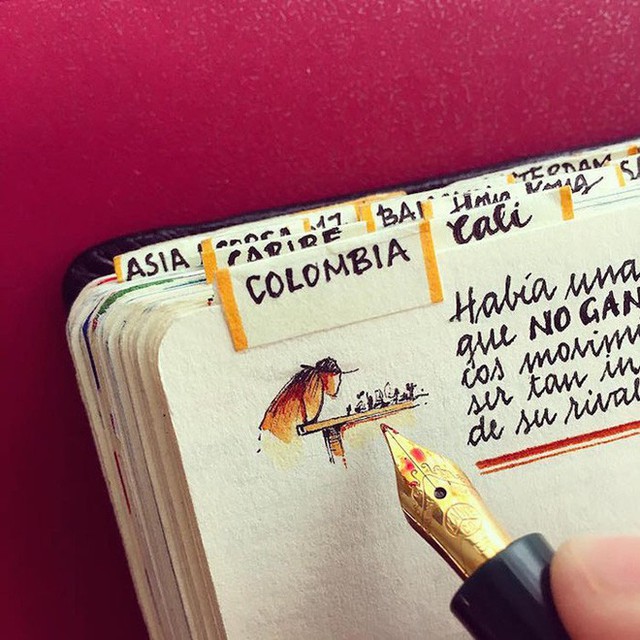 ASIA
CARIBE
BA
Cali
COLOMBIA
Había una
que NO GAN
cos movim
ser tan in
de su rival